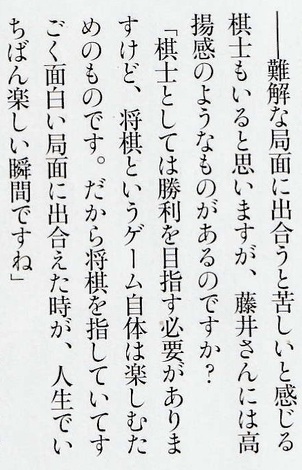 ――難解な局面に出合うと苦しいと感じる
棋士もいると思いますが、藤井さんには高
揚感のようなものがあるのですか？
「棋士としては勝利を目指す必要がありま
すけど、将棋というゲーム自体は楽しむた
めのものです。だから将棋を指していてす
ごく面白い局面に出合えた時が、人生でい
ちばん楽しい瞬間ですね」